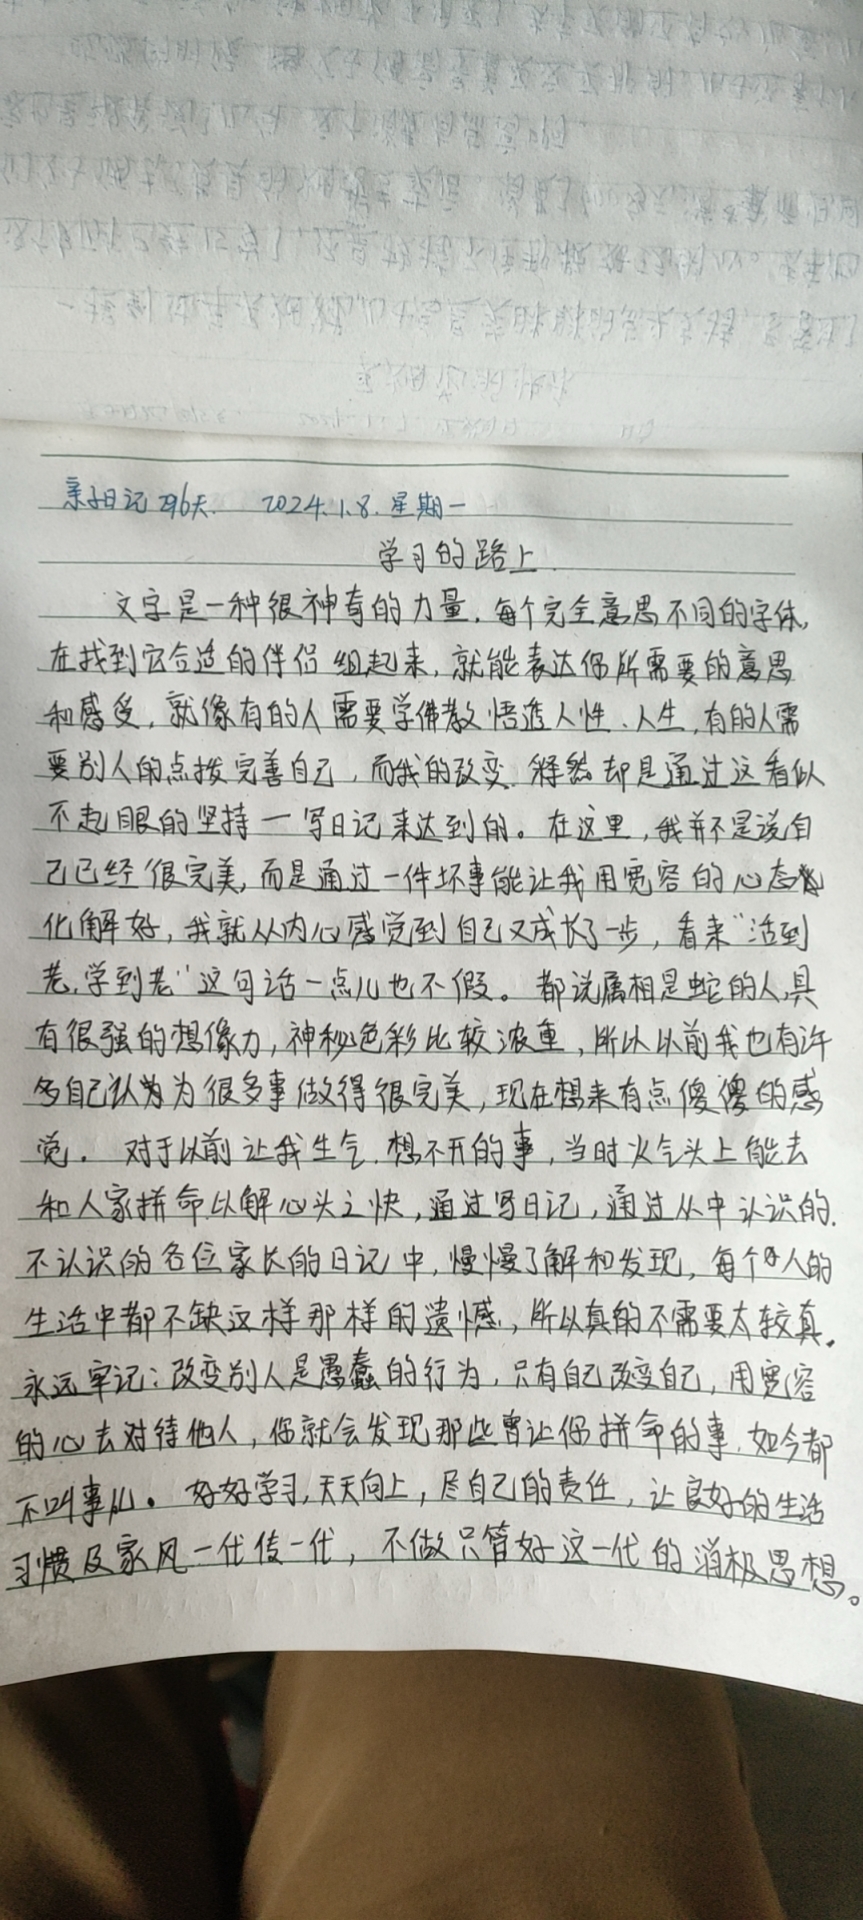 亲子日记296天. 2024.1.8.星期一
学习的路上.
文字是一种很神奇的力量，每个完全意思不同的字体，
在找到它合适的伴侣组起来，就能表达你所需要的意思
和感受，就像有的人需要学佛教悟透人性、人生，有的人需
要别人的点拨完善自己，而我的改变、释然却是通过这看似
不起眼的坚持一写日记来达到的。在这里，我并不是说自
己已经很完美，而是通过一件坏事能让我用宽容的心态
化解好，我就从内心感觉到自己又成长了一步，看来“活到
老，学到老”这句话一点儿也不假。都说属相是蛇的人，具
有很强的想像力，神秘色彩比较浓重，所以以前我也有许
多自己认为为很多事做得很完美，现在想来有点傻傻的感
觉。对于以前让我生气、想不开的事，当时火气头上能去
和人家拼命以解心头之快，通过写日记，通过从中认识的、
不认识的各位家长的日记中，慢慢了解和发现，每个人的
生活中都不缺这样那样的遗憾，所以真的不需要太较真。
永远牢记：改变别人是愚蠢的行为，只有自己改变自己，用宽容
的心去对待他人，你就会发现那些曾让你拼命的事，如今都
不叫事儿。好好学习，天天向上，尽自己的责任，让良好的生活
习惯及家风一代传一代，不做只管好这一代的消极思想。